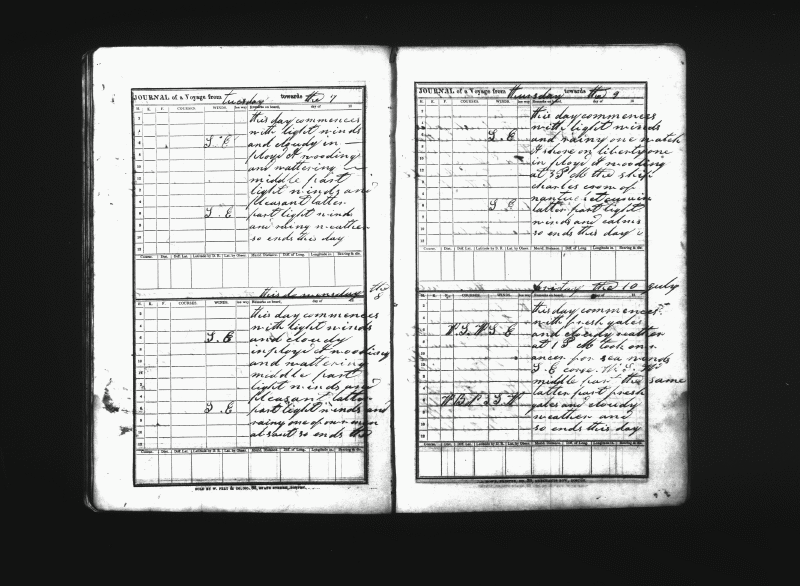 JOURNAL of a Voyage from tuesday towards the 7
H. K. F. COURSES. WINDS. Remarks on board, day of 18
this day commences
with light winds
S. E. and cloudy in
ployd I wooding
and wattering
middle part
light winds and
pleasant latter
S. E part light winds
and rainy weather
so ends this day
Course. Dist. Diff Lat. Latitude by D. R. Lat. by Obser. Merid. Distance. Diff. of Long. Longitude in. Bearing & dis.
the
8
H. K. F. COURSES. WINDS. Remarks on board, day of
this day commences
with light winds
S. E. and cloudy
inployd I wooding
and wattering
middle part
light winds and
pleasant latter
S. E part light winds and
rainy one of our men
so ends the
Course. Dist. Diff Lat. Latitude by D. R. Lat. by Obser. Merid. Distance. Diff. of Long. Longitude in. Bearing & dis.
JOURNAL of a Voyage from thursday towards the 9
H. K. F. COURSES. WINDS. Remarks on board, day of 18
this day commences
with light winds
S. E and rainy one watch
shore on liberty one
in ployd I wooding
at 3 P M the ship
charles of
S E
latter part light
winds and calms
so ends this day
Course. Dist. Diff Lat. Latitude by D. R. Lat. by Obser. Merid. Distance. Diff. of Long. Longitude in. Bearing & dis.
friday the 10 July
H. K. F. COURSES. WINDS. Remarks on board, day of 18
this day commences
with fresh gales
W S W S E and cloudy weather
at 1 P M took our
ancor for sea winds
S E corse W. S. W
middle part the same
latter part fresh
gales and cloudy
weather and
so ends this day
Course. Dist. Diff Lat. Latitude by D. R. Lat. by Obser. Merid. Distance. Diff. of Long. Longitude in. Bearing & dis.